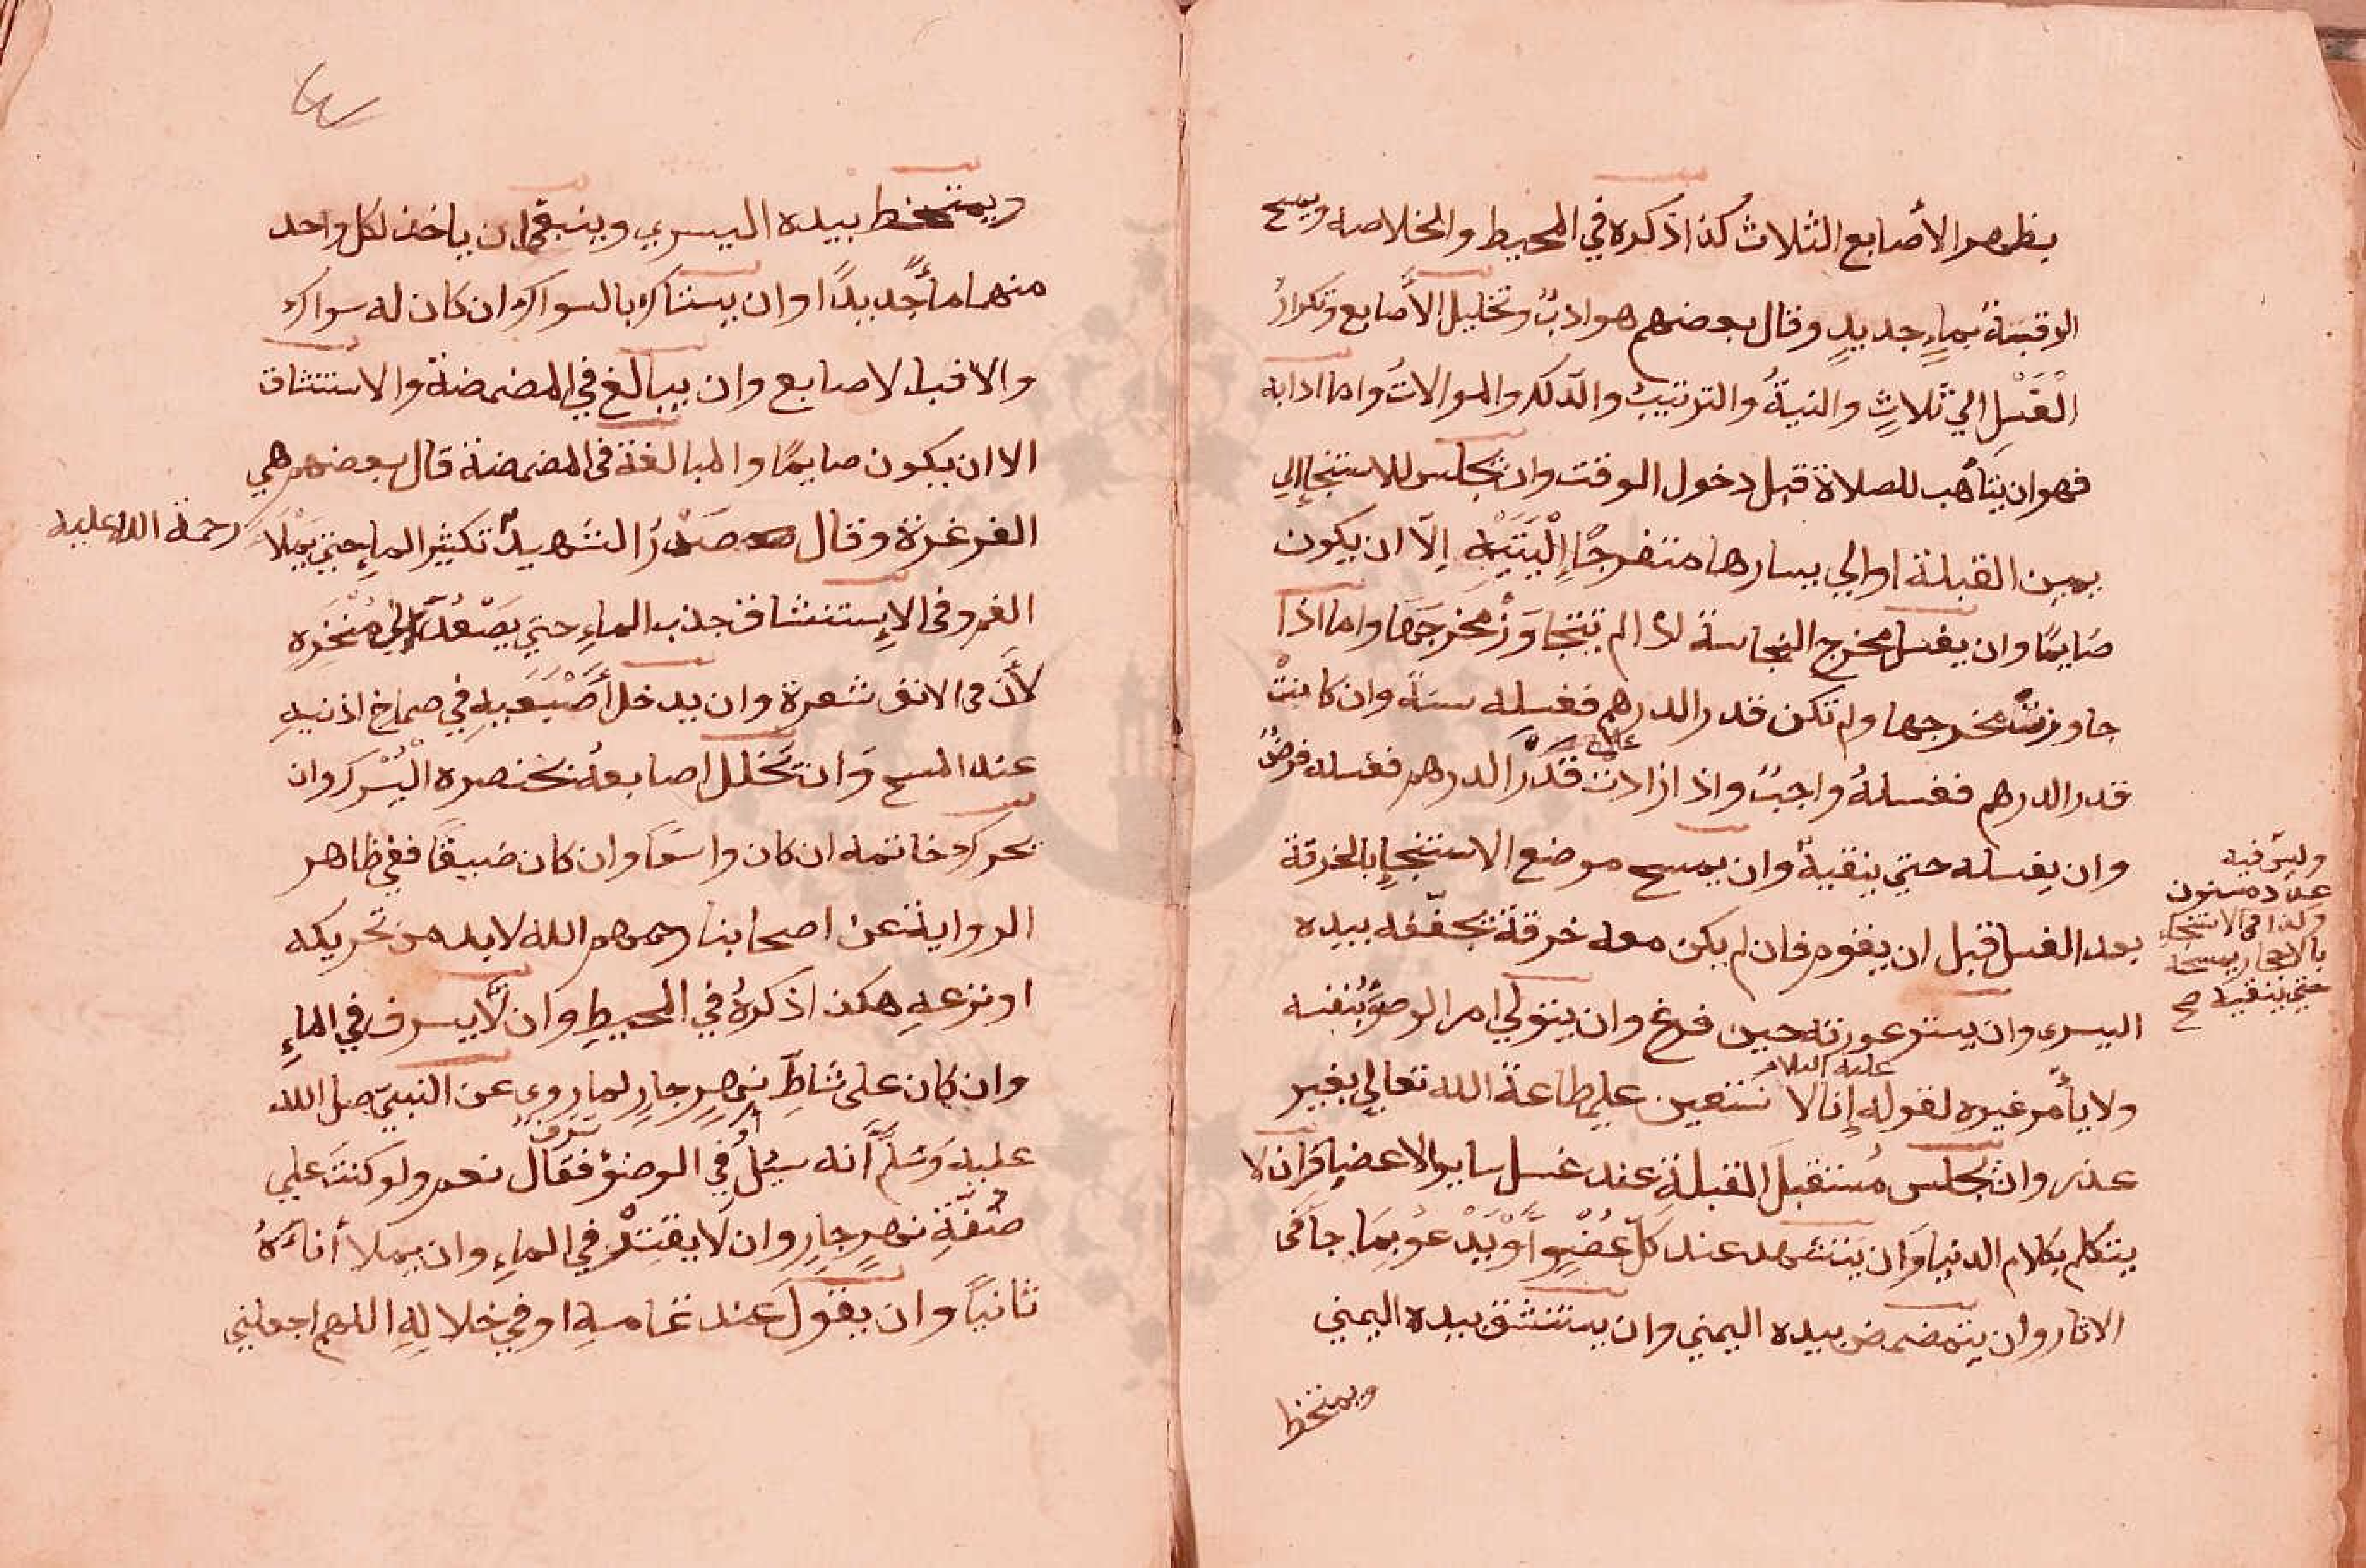 بظهر الأصابع الثلاث كذا ذكره في المحيط والخلاصه ويمسح
الرقبَة بماءٍ جديدٍ وقال بعضهم هو ادبٌ وتخليل الأصابع وتكرارُ
الْغَسْلِ الي ثلاثٍ والنيةُ والترتيبُ والدّلك والموالاتُ واما ادابه
فهو ان يتأهب للصلاة قبل دخول الوقت وان يجلس للاستنجاءِ الي
يمين القبلة او الي يسارها متفرجًا إلْيَتَيْهِ إلاّ ان يكون
صَايمًا وان يغسل مخرج النجاسة اذا لم تتجاوَزْ مخرجَهَا واما اذا
جاوزتْ مخرجها ولم تكن قدر الدرهم فغسله سنةً وان كانتْ
قدر الدرهم فغسلهُ واجبٌ واذا زادت علي قَدْرِ الدرهم فغسله فرضٌ
وان يغسله حتي ينقيهُ وان يمسح موضع الاستنجاءِ بالخرقة
بعد الغسل قبل ان يقوم فان لم يكن معه خرقةٌ يجفّفه بيده
اليسري وان يستر عورته حين فرغ وان يتولي امر الوضوءِ بنفسه
ولا يأمر غيره لقوله عليه السلام إنا لا نستعين علي طاعة الله تعالي بغير
عذر وان يجلس مُستقبلَ القبلةِ عند غسل ساير الاعضاء وان لا
يتكلم بكلام الدنيا وَان يتشهد عند كلّ عُضْوٍ اَوْ يَدْعوُ بِمَا جاَ في
الاثار وان يتمضمض بيده اليمني وان يستنشق بيده اليمني
ويمتخط
وليس فيه
عدد مسنون
وكذا في الاستنجاء
بالاحجار يمسحه
حتي ينقيه صح
ويمتخط بيده اليسري وينبغي ان ياخذ لكل واحد
منهما ماءً جديدًا وان يستاك بالسواك ان كان له سواك
والا فبالاصابع وان يبالغ في المضمضة والاستنشاق
الا ان يكون صايمًا والمبالغة في المضمضة قال بعضهم هي
الغرغرة وقال صَدْرُ الشهيدُ تكثير الماءِ حتي يَمْلَاءَ
رحمة الله عليه
الفم وفي الاِستنشاق جذب الماءِ حتي يَصْعُدَ الي مُنْخَرِهِ
لأنَّ في الانف شعرة وان يدخل أصْبَعَيهِ في صماخ اذنيهِ
عند المسح وَان يخلل اصابعهُ بخنصره الْيُسْرَي وان
يحرك خاتمه ان كان واسعًا وان كان ضيقًا ففي ظاهر
الرواية عن اصحابنا رحمهم الله لا بد من تحريكه
او نزعهِ هكذا ذكرهُ في المحيطِ وان لّا يسرف في الماءِ
وان كان علي شَاطِّ نهرٍ جارٍ لما روي عن النبيّ صلي الله
عليه وَسَلَّمَ أنه سيُلَ أفي الوضؤ سَرَفٌ فقال نعم ولو كنتَ علي
ضُفّةِ نهرٍ جارٍ وان لا يقتِّرْ في الماءِ وان يملا أناءَهُ
ثانيًا وان يقولَ عند تمامه او في خلالِهِ اللهم اجعلني